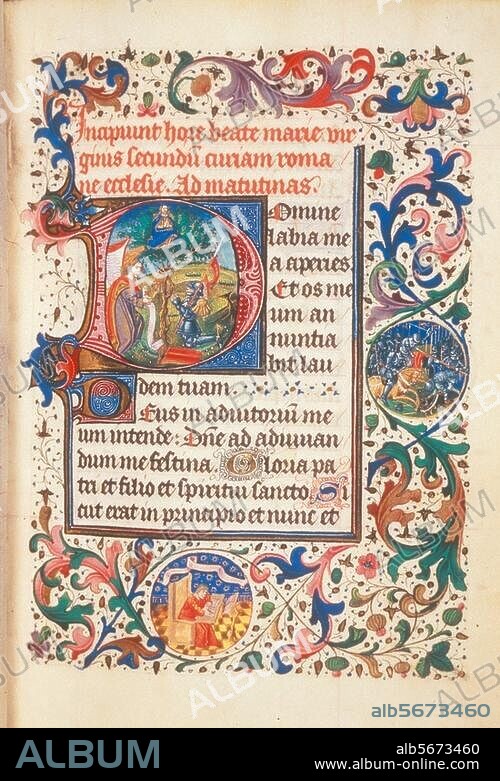 Incipiunt hore beate marie vir
ginis secundũ curiam roma
ne ecclesie. Ad matutinas.
Domine
labia me
a aperies
Et os me
um an
nuntia
bit lau
dem tuam
Deus in adiutoriũ me
um intende: Dñe ad adiuuan
dum me festina. Gloria pa
tri et filio et spiritui sancto. Si
cut erat in principio et nunc et
ALBUM
alb5673460
ALBUM
alb5673460
www.album-online.com